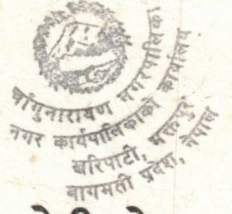 चाँगुनारायण नगरपालिका
नगर कार्यपालिकाको कार्यालय
खरिपाटी, भक्तपुर
बागमती प्रदेश, नेपाल